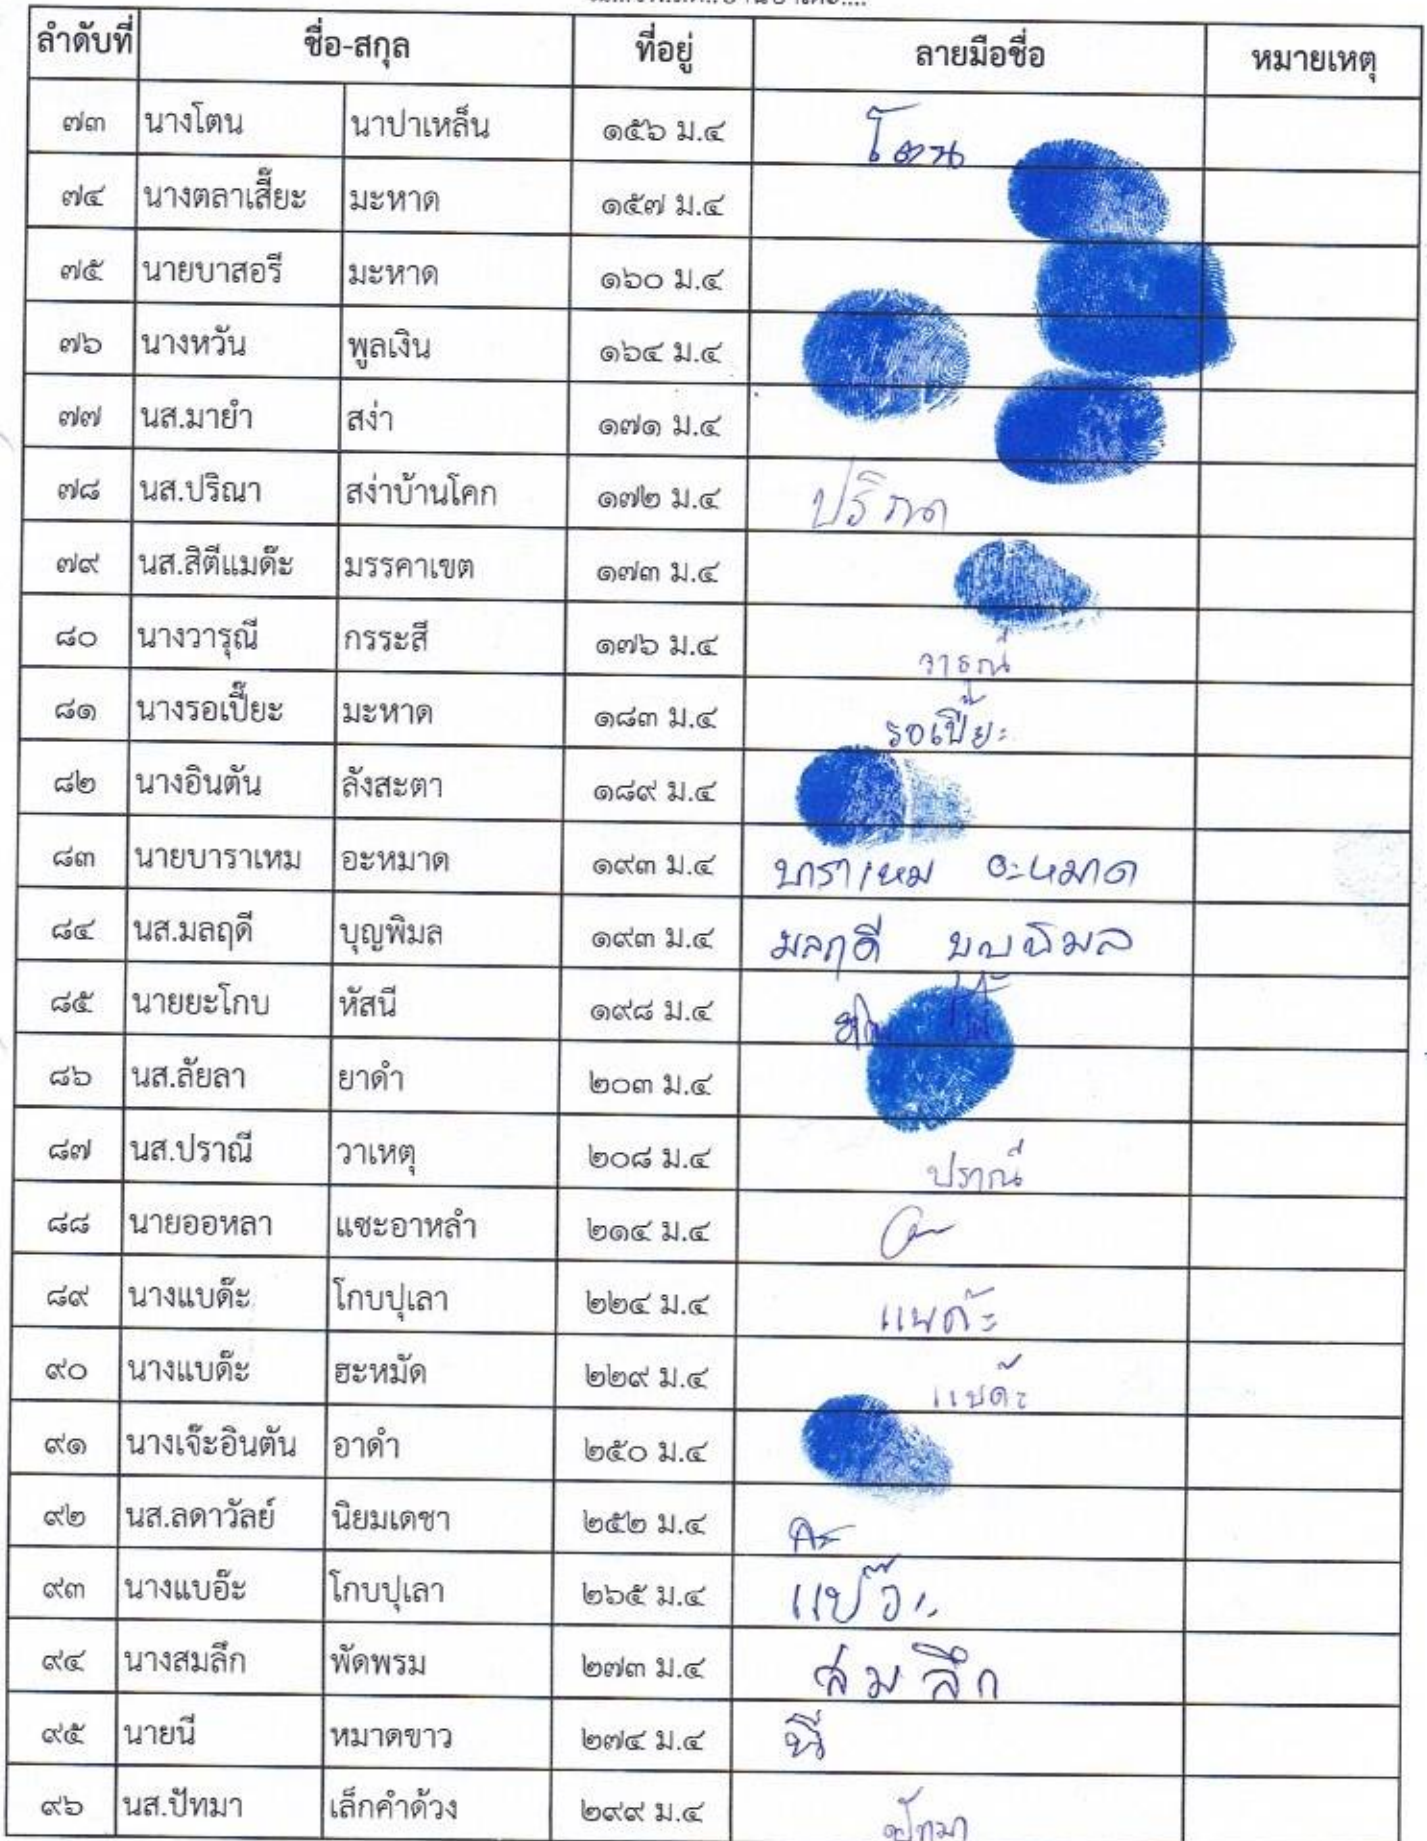 ลำดับที่ ชื่อ-สกุล ที่อยู่ ลายมือชื่อ หมายเหตุ
๗๓ นางโตน นาปาเหล็น ๑๕๖ ม.๔ โตน
๗๔ นางตลาเสี๊ยะ มะหาด ๑๕๗ ม.๔
๗๕ นายบาสอรี มะหาด ๑๖๐ ม.๔
๗๖ นางหวัน พูลเงิน ๑๖๔ ม.๔
๗๗ นส.มายำ สง่า ๑๗๑ ม.๔
๗๘ นส.ปริณา สง่าบ้านโคก ๑๗๒ ม.๔ ปริณา
๗๙ นส.สิตีแมด๊ะ มรรคาเขต ๑๗๓ ม.๔
๘๐ นางวารุณี กรระสี ๑๗๖ ม.๔ วารุณี
๘๑ นางรอเปี๊ยะ มะหาด ๑๘๓ ม.๔ รอเปี๊ยะ
๘๒ นางอินตัน ลังสะตา ๑๘๙ ม.๔
๘๓ นายบาราเหม อะหมาด ๑๙๓ ม.๔ บาราเหม อะหมาด
๘๔ นส.มลฤดี บุญพิมล ๑๙๓ ม.๔ มลฤดี บุญพิมล
๘๕ นายยะโกบ หัสนี ๑๙๘ ม.๔
๘๖ นส.ลัยลา ยาดำ ๒๐๓ ม.๔
๘๗ นส.ปราณี วาเหตุ ๒๐๘ ม.๔ ปราณี
๘๘ นายออหลา แซะอาหลำ ๒๑๔ ม.๔
๘๙ นางแบด๊ะ โกบปุเลา ๒๒๔ ม.๔ แบด๊ะ
๙๐ นางแบด๊ะ ฮะหมัด ๒๒๙ ม.๔ แบด๊ะ
๙๑ นางเจ๊ะอินตัน อาดำ ๒๕๐ ม.๔
๙๒ นส.ลดาวัลย์ นิยมเดชา ๒๕๒ ม.๔
๙๓ นางแบอ๊ะ โกบปุเลา ๒๖๕ ม.๔ แบอ๊ะ
๙๔ นางสมลึก พัดพรม ๒๗๓ ม.๔ สมลึก
๙๕ นายนี หมาดขาว ๒๗๔ ม.๔ นี
๙๖ นส.ปัทมา เล็กคำด้วง ๒๙๙ ม.๔ ปัทมา